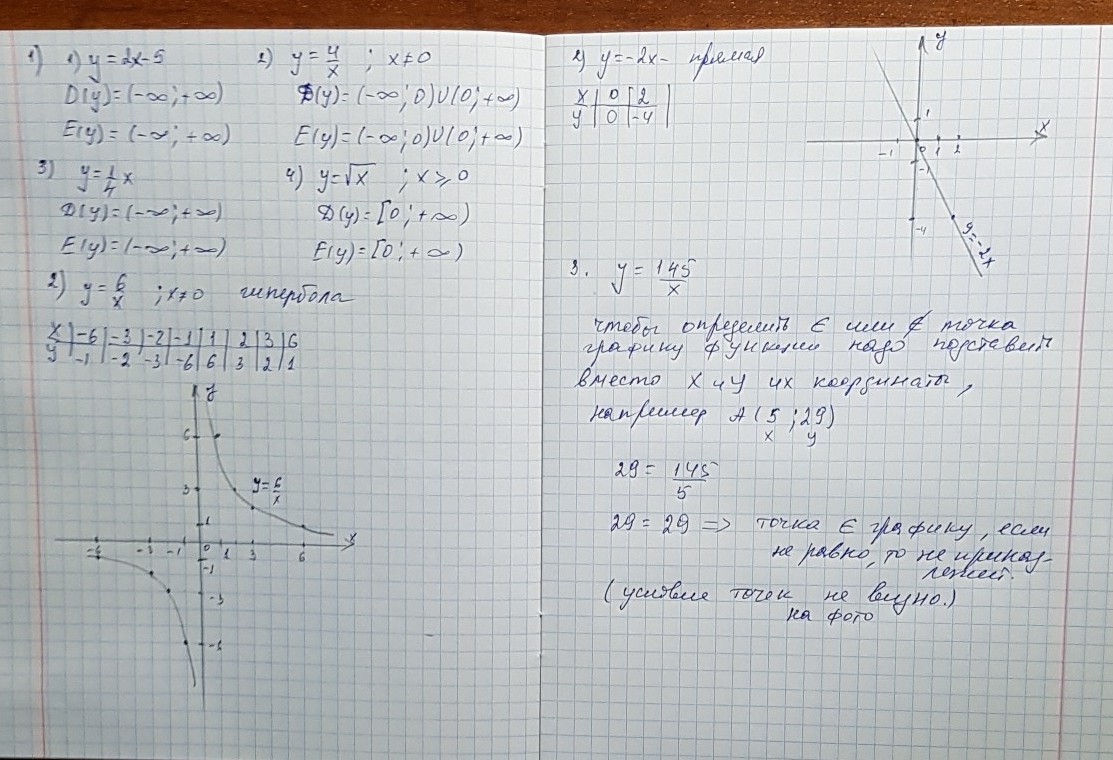 1) 1) y = 2x-5
D(y) = (-∞; +∞)
E(y) = (-∞; +∞)
2) y = 4/x ; x≠0
D(y) = (-∞; 0)U(0; +∞)
E(y) = (-∞; 0)U(0; +∞)
3) y = 1/4 x
D(y) = (-∞; +∞)
E(y) = (-∞; +∞)
4) y = √x ; x ⩾ 0
D(y) = [0; +∞)
E(y) = [0; +∞)
2) y = 6/x ; x≠0 гипербола
x | -6 | -3 | -2 | -1 | 1 | 2 | 3 | 6
y | -1 | -2 | -3 | -6 | 6 | 3 | 2 | 1
y
6
3
y = 6/x
1
-6 -3 -1 0 1 3 6 x
-1
-3
-6
2) y = -2x - прямая
x | 0 | 2 |
y | 0 | -4 |
y
1
x
-1 0 1 2
-1
-4
y = -2x
3. y = 145/x
чтобы определить ∈ или ∉ точка
графику функции надо подставить
вместо x и y их координаты,
например A (5 ; 29)
x y
29 = 145/5
29 = 29 => точка ∈ графику, если
не равно, то не принад-
лежит.
(условие точек не видно.)
на фото